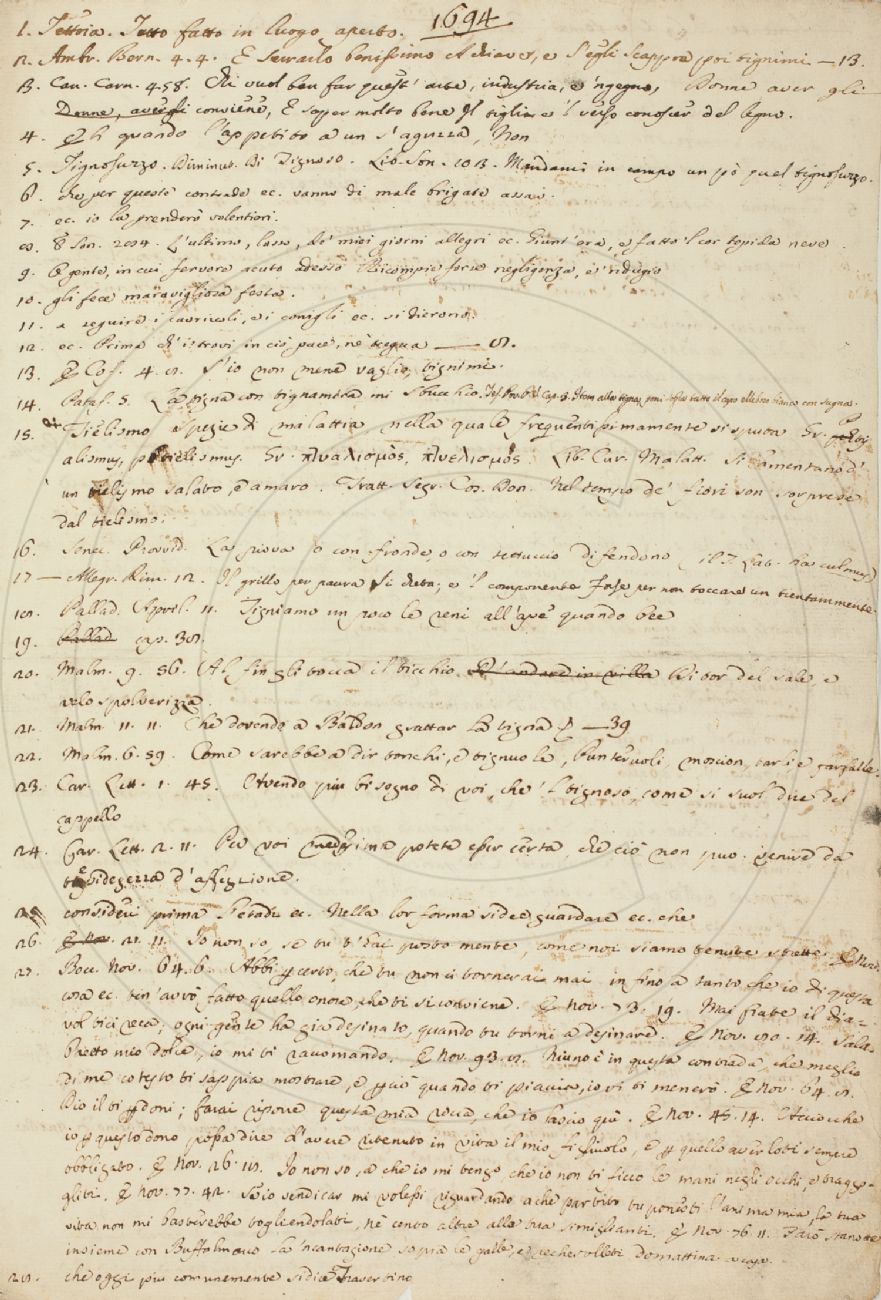 1694
1. Tettoia. Tetto fatto in luogo aperto.
2. Ambr. Bern. 4. 4. E serrarlo benissimo a chiave, e s'egli scappa poi tignimi — 13.
3. Can. Carn. 458. Chi vuol ben far quest' arte, industria, e 'ngegno, Donne aver gli
Donne, aver gli conviene, E saper molto bene Il tiglio e 'l verso conoscer del legno.
4. E h quando l'appetito a un s'aguzza, Non
5. Tignosuzzo. Diminut. Di Tignoso. Lib. Son. 103. Mandami in campo un pò quel tignosuzzo.
6. che per queste contrade ec. vanno di male brigate assai.
7. ec. io la prenderò volentieri.
8. E Son. 2004. L'ultimo, lasso, de' miei giorni allegri ec. Giunt'era, e fatto 'l cor tepida neve.
9. O gente, in cui fervore acuto adesso Ricompie forse negligenza, e 'ndugio
10. gli fece maravigliosa festa.
11. a seguire i cavrioli, e i conigli ec. si dierono.
12. ec. Prima ch'i' trovi in ciò pace, nè tregua — 8.
13. E Cof. 4. 8. S'io non mene vaglio, tignimi.
14. Pataf. 5. La tigna con tignamica mi sbucchio.
15. Tielismo Spezie di malattia nella quale frequentissimamente si sputa Gr.
alismus, ptielismus. Gr. πτυαλισμὸς, πτυελισμὸς. Lib. Cur. Malatt. Si lamentano d'
un tielismo salato, e amaro. Tratt. Segr. Cos. Don. Nel tempo de' fiori son sorprese
dal tielismo.
16. Senec. Provvid. La piova o con fronde, o con tettuccio difendono (il T. Lat. ha culmus)
17 — Allegr. Rim. 12. Il grillo per paura si cheta; e 'l componente forse per non toccare un tientammente.
18. Pallad. April. 11. Tigniamo un poco le reni all'ape quando bee
19. Pallad cap. 38.
20. Malm. 9. 56. Al fin gli tocca il ticchio D'andare in villa Di tor del sale, e
velo spolverizza.
21. Malm. 11. 11. Che dovendo a Baldon grattar la tigna — 39
22. Malm. 6. 59. Come sarebbe a dir tonchi, e tignuole, Punteruoli, moscion, tarli e farfalle.
23. Car. Lett. 1. 45. Avendo più bisogno di voi, che 'l tignoso, come si suol dire del
cappello
24. Car. Lett. 2. 11. Per voi medesima potete esser certa, che ciò non può venire da
tepidezza d'affezione.
25 consideri prima l'etadi ec. Nella lor forma si dee guardare ec. che
26. E Nov. 21. 11. Io non so, se tu t'hai posto mente, come noi siamo tenute strette. E Nov.
27. Bocc. Nov. 64. 6. Abbi per certo, che tu non ci tornerai mai in fino a tanto che io di questa
cosa ec. tin'avrò fatto quello onore, che ti si conviene. E Nov. 73. 19. Mai frate il dia-
vol ti ci reca; ogni gente ha già desinato, quando tu torni a desinare. E Nov. 80. 14. Sala-
baetto mio dolce, io mi ti raccomando. E Nov. 93. 8. Niuno è in questa contrada, che meglio
di me cotesto ti sappia mostrare, e perciò quando ti piaccia, io vi ti menerò. E Nov. 64. 8.
Dio il ti perdoni; farai riporre questa mia rocca, che io lascio quì. E Nov. 45. 14. Acciocchè
io per questo dono possa dire d'avere ritenuto in vita il mio figliuolo, e per quello averloti sempre
obbligato. E Nov. 26. 18. Io non so, a che io mi tengo, che io non ti ficco le mani negli occhi, e traggo-
gliti. E Nov. 77. 42. Se io vendicar mi volessi riguardando a che partito tu ponesti l'anima mia, la tua
vita non mi basterebbe togliendolati, nè cento altre alla tua simiglianti. E Nov. 76. 11. Farò stanotte
insieme con Buffalmacco la 'ncantagione sopra le galle, e recherolleti domattina
28. che oggi più comunemente si dice Travertino